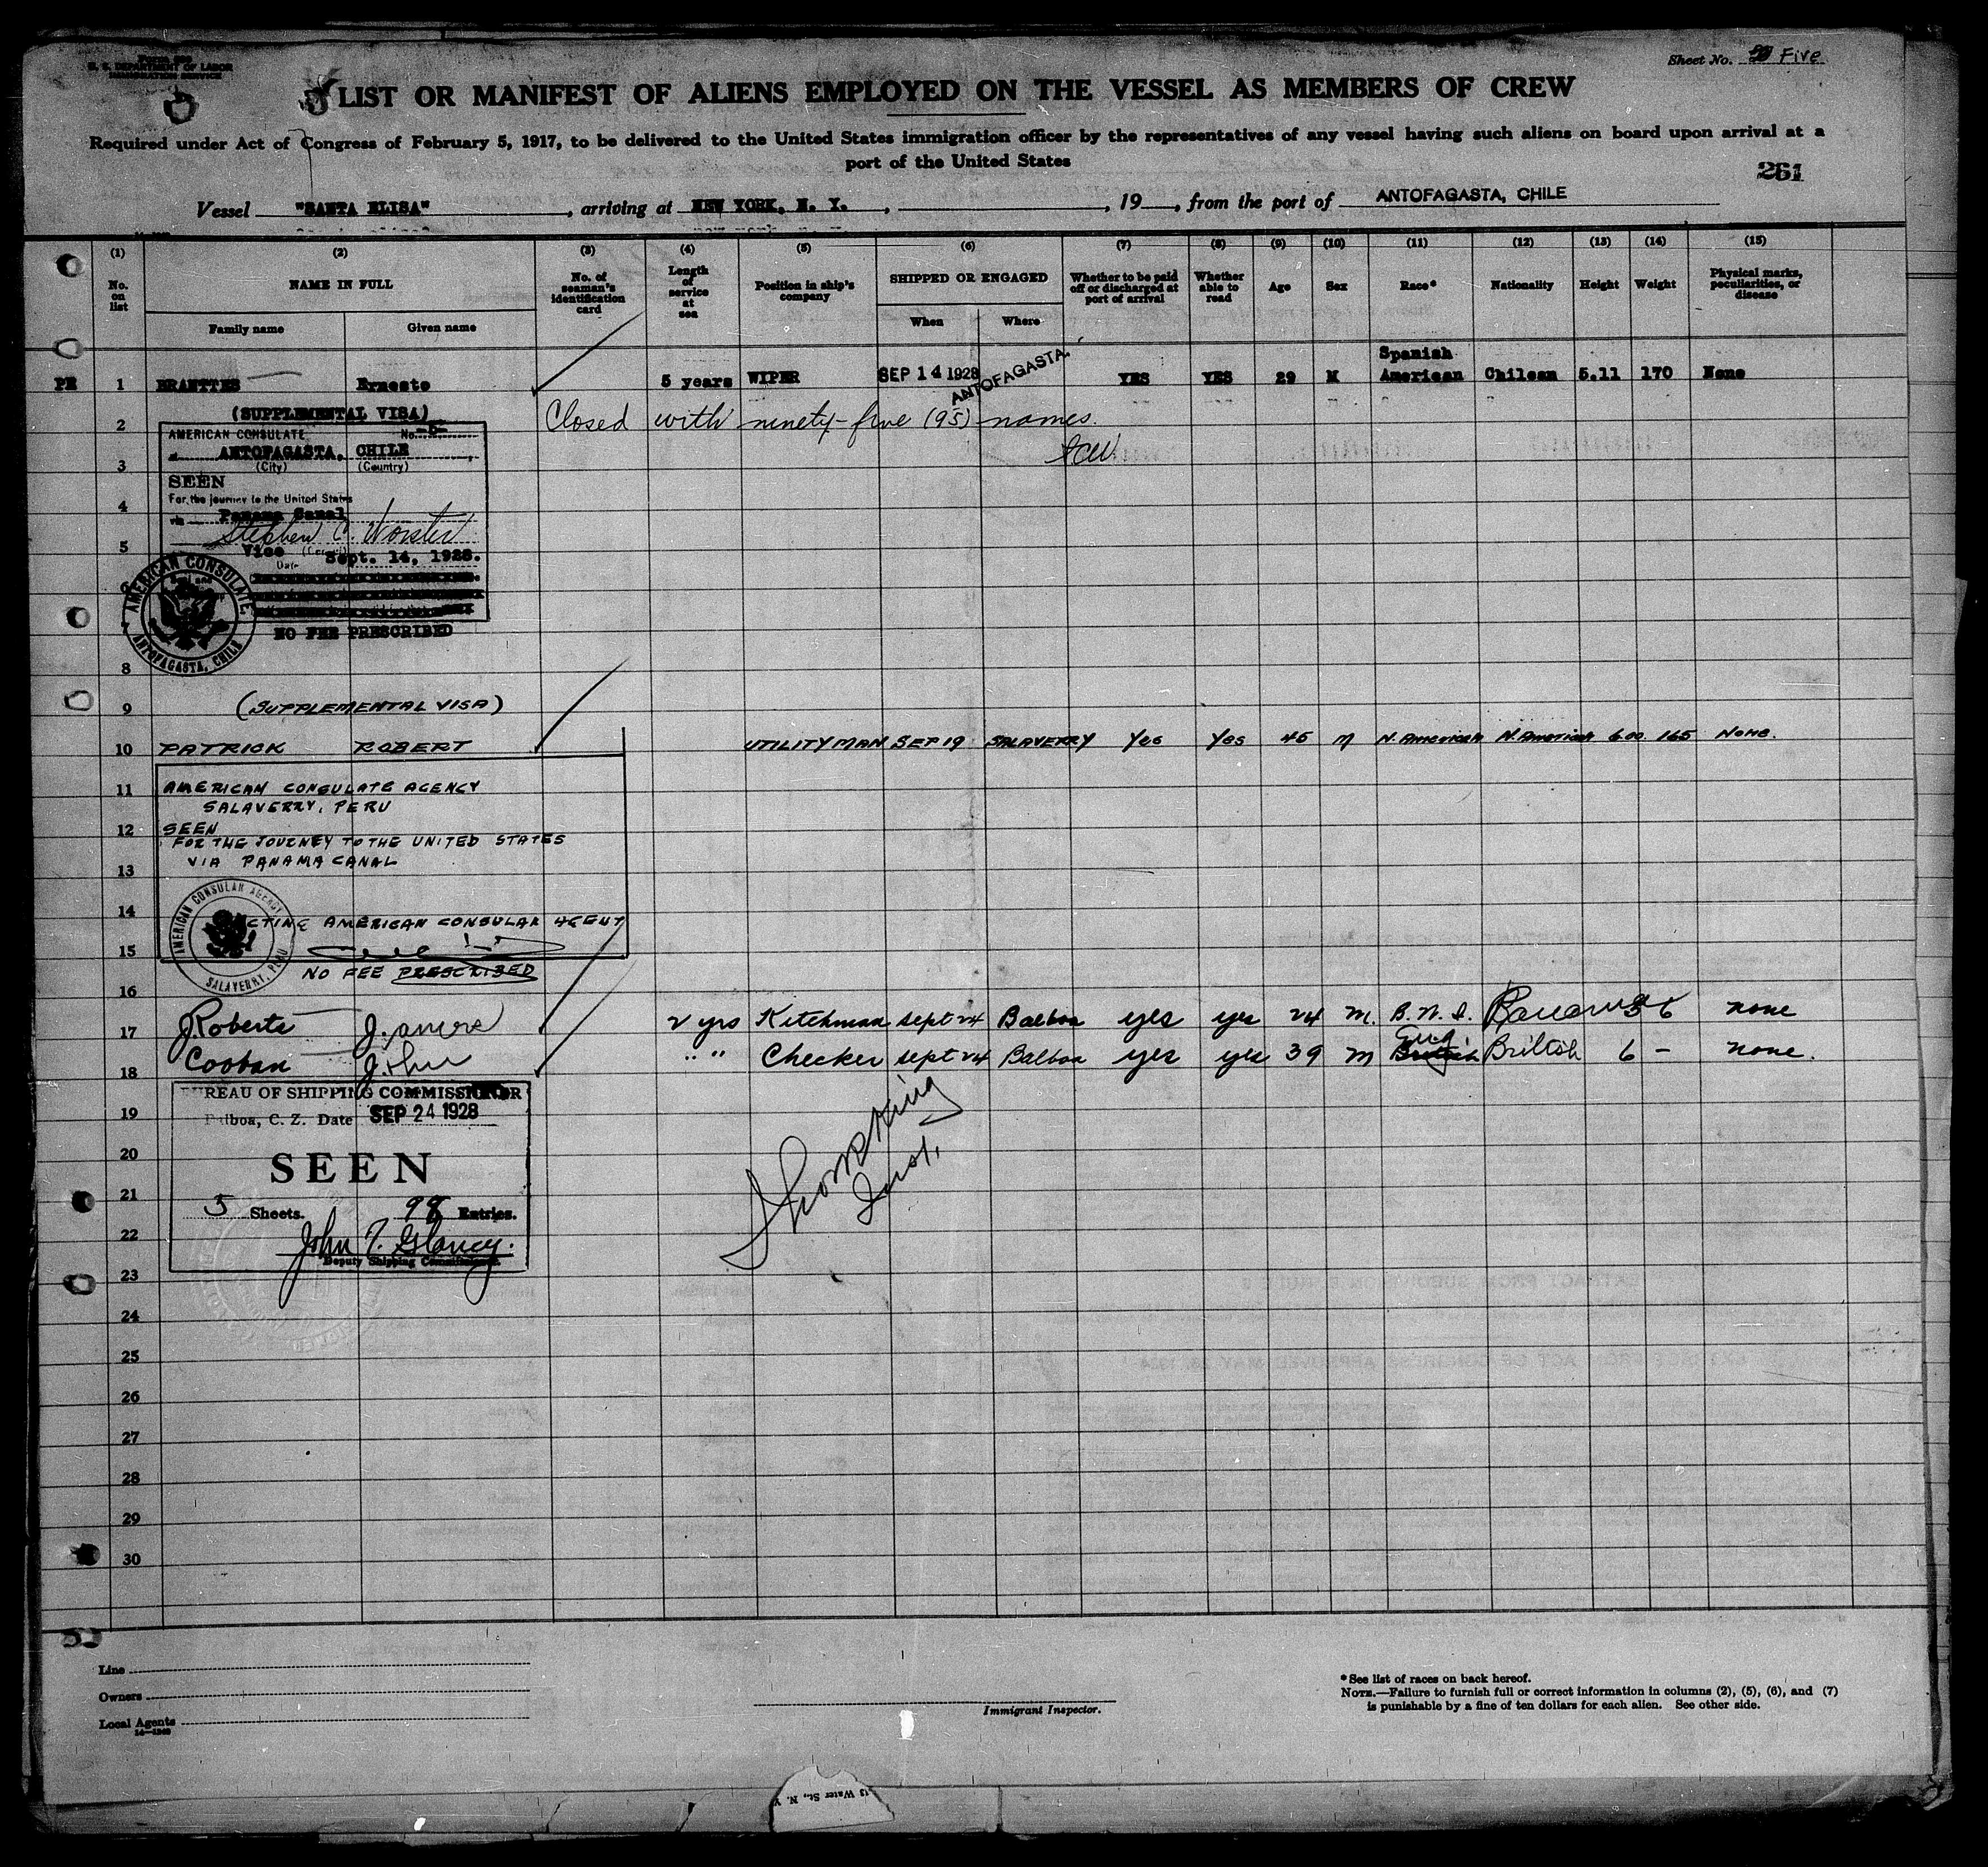 Form 689
U. S. DEPARTMENT OF LABOR
IMMIGRATION SERVICE
Sheet No. Five
LIST OR MANIFEST OF ALIENS EMPLOYED ON THE VESSEL AS MEMBERS OF CREW
Required under Act of Congress of February 5, 1917, to be delivered to the United States immigration officer by the representatives of any vessel having such aliens on board upon arrival at a
port of the United States
261
Vessel "SANTA ELISA", arriving at NEW YORK, N. Y., , 19 , from the port of ANTOFAGASTA, CHILE
(1) (2) (3) (4) (5) (6) (7) (8) (9) (10) (11) (12) (13) (14) (15)
No. on list NAME IN FULL No. of seaman's identification card Length of service at sea Position in ship's company SHIPPED OR ENGAGED Whether to be paid off or discharged at port of arrival Whether able to read Age Sex Race* Nationality Height Weight Physical marks, peculiarities, or disease
Family name Given name When Where
PR 1 BRANTTES Ernesto 5 years WIPER SEP 14 1928 ANTOFAGASTA. YES YES 29 M Spanish American Chilean 5.11 170 None
(SUPPLEMENTAL VISA)
2 Closed with ninety-five (95) names.
AMERICAN CONSULATE No. 5
ANTOFAGASTA, CHILE
(City) (Country)
3
SEEN
For the journey to the United States
4
via Panama Canal
Stephen C. Worster
5
Vice
Date Sept. 14, 1928.
6
AMERICAN CONSULATE, ANTOFAGASTA, CHILE
NO FEE PRESCRIBED
8
9 (SUPPLEMENTAL VISA)
10 PATRICK ROBERT UTILITYMAN SEP 19 SALAVERRY Yes Yes 45 M N. American N. American 6.00 165 NONE.
11 AMERICAN CONSULATE AGENCY
SALAVERRY, PERU
12 SEEN
FOR THE JOURNEY TO THE UNITED STATES
VIA PANAMA CANAL
13
AMERICAN CONSULAR AGENCY SALAVERRY, PERU
14 ACTING AMERICAN CONSULAR AGENT
15
NO FEE PRESCRIBED
16
17 Roberts James 2 yrs Kitchman Sept 24 Balboa yes yes 24 M. B.W.I. 5 6 none
18 Cooban John " " Checker Sept 24 Balboa yes yes 39 M Eng British British 6 - none.
BUREAU OF SHIPPING COMMISSIONER
19 Balboa, C. Z. Date SEP 24 1928
20 SEEN
21 5 Sheets. 98 Entries.
22 John T. Glancy.
Deputy Shipping Commissioner.
23
24
25
26
27
28
29
30
Line
Owners
Local Agents
14—1240
Immigrant Inspector.
*See list of races on back hereof.
NOTE.—Failure to furnish full or correct information in columns (2), (5), (6), and (7)
is punishable by a fine of ten dollars for each alien. See other side.
13 Water St., N. Y.